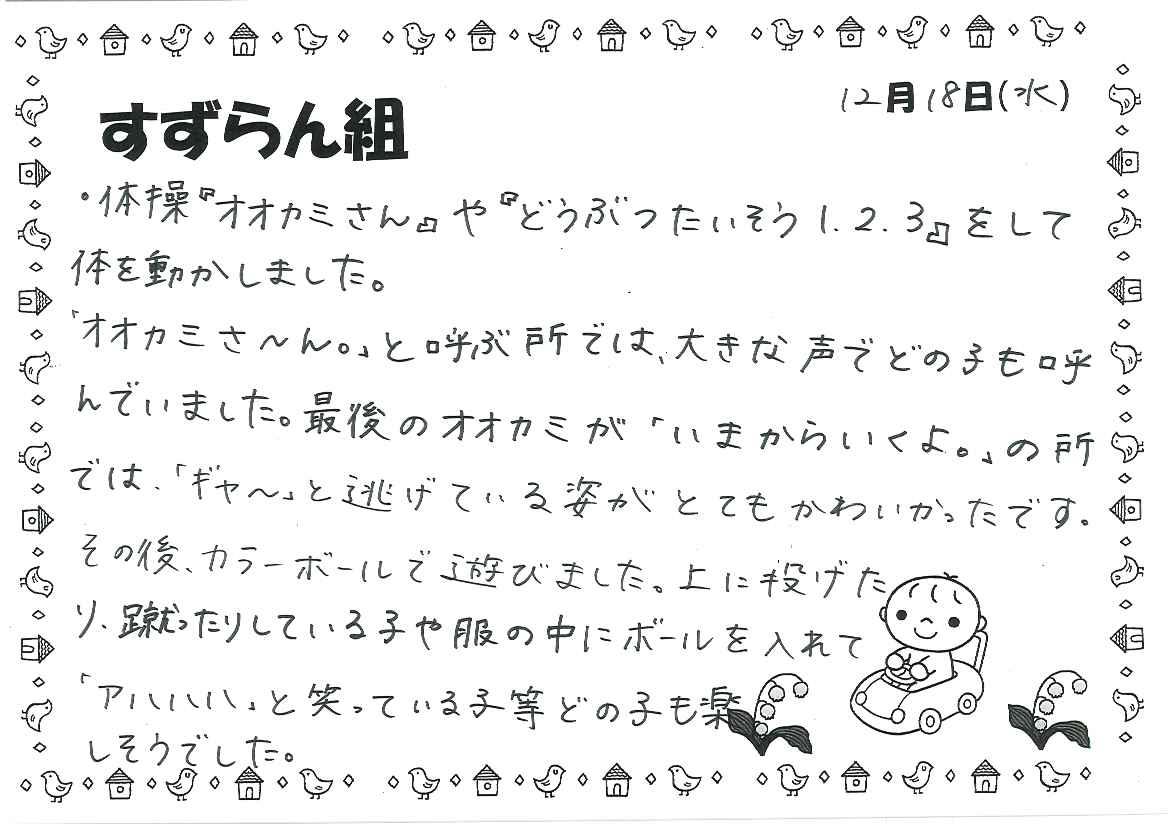 12月18日(水)
すずらん組
・体操『オオカミさん』や『どうぶつたいそう1.2.3』をして
体を動かしました。
「オオカミさ〜ん。」と呼ぶ所では、大きな声でどの子も呼
んでいました。最後のオオカミが「いまからいくよ。」の所
では、「ギャ〜」と逃げている姿がとてもかわいかったです。
その後、カラーボールで遊びました。上に投げた
り、蹴ったりしている子や服の中にボールを入れて
「アハハハ」と笑っている子等どの子も楽
しそうでした。